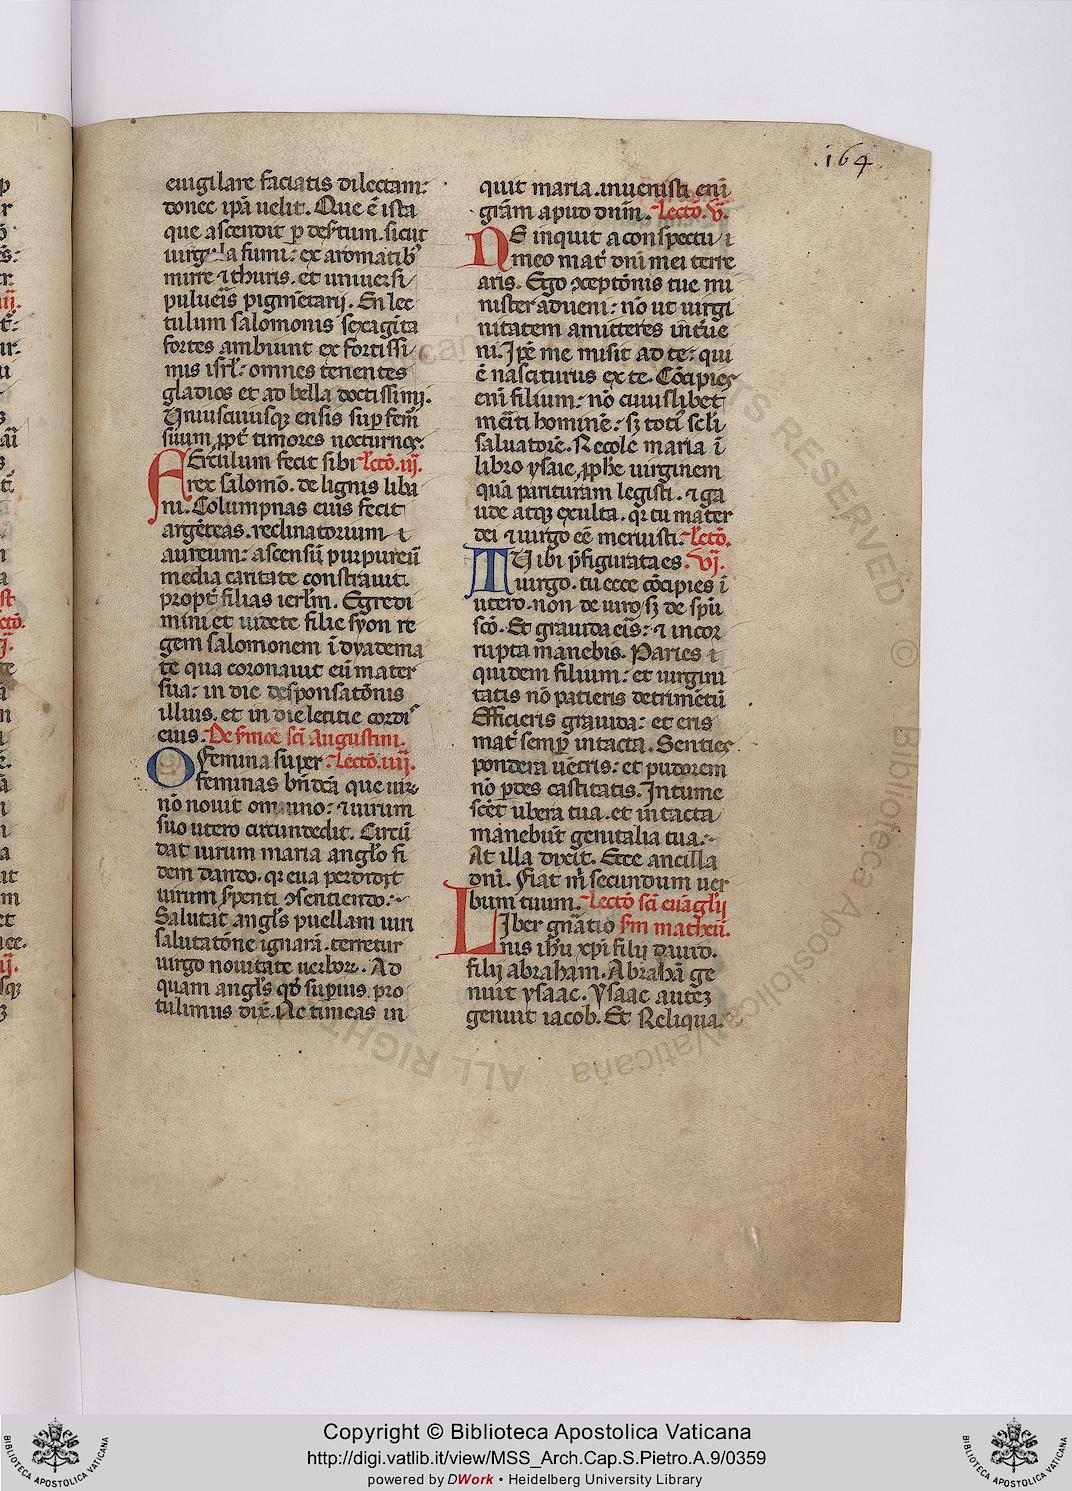 .164.
euigilare faciatis dilectam:
donec ip̄a uelit. Que ē ista
que ascendit p desertum. sicut
uirgula fumi: ex aromatib⁹
mirre ⁊ thuris. et uniuersi
pulueris pigmētarij. En lec
tulum salomonis sexagīta
fortes ambiunt ex fortissi
mis isrl̄: omnes tenentes
gladios et ad bella doctissimi.
Vniuscuiusqꝫ ensis sup femˀ
suum ꝓpt̄ timores nocturnos.
FErculum fecit sibi Lectō.iij.
rex salomō. de lignis liba
ni. Columpnas eius fecit
argēteas. reclinatorium
aureum: ascensū purpureū
media caritate constrauit.
propt̄ filias ierl̄m. Egredi
mini et uidete filie syon re
gem salomonem ī dyadema
te qua coronauit eū mater
sua: in die desponsatōnis
illius. et in die letitie cordis
eius. De s̄moe sc̄i Augustini.
O Femina super Lectō.iiij.
feminas bn̄dcā que uir
nō nouit omnino: ⁊ uirum
suo utero circundedit. Circū
dat uirum maria angl̄o fi
dem dando. qr eua perdidit
uirum s̄penti ɔsentiendo.
Salutat̄ angl̄s puellam uiri
salutatōne ignarā. terretur
uirgo nouitate uerboꝝ. Ad
quam angl̄s qd̄ superius pro
tulimus dix̄. Ne timeas in
quit maria. inuenisti enī
grām apud dnm̄. Lectō.v.
NE inquit a conspectu
meo mat̄ dnī mei terre
aris. Ego ɔceptōnis tue mi
nister adueni: nō ut uirgi
nitatem amitteres interue
ni. Ip̄e me misit ad te: qui
ē nasciturus ex te. Cōcipies
enī filium: nō cuiuslibet
mēiti hominē: sꝫ toti sc̄li
saluatorē. Recole maria ī
libro ysaie, ꝓphe uirginem
quā parituram legisti. ⁊ ga
ude atqꝫ exulta. qr tu mater
dei ⁊ uirgo eē meruisti. Lectō.
TV ibi p̄figurata es. vi.
uirgo. tu ecce cōcipies ī
utero. non de uiro sꝫ de sp̄u
scō. Et grauida eris: ⁊ incor
rupta manebis. Paries
quidem filium: et uirgini
tatis nō patieris detrimētū
Efficieris grauida: et eris
mat̄ semp intacta. Senties
pondera uētris: et pudorem
nō pdes castitatis. Intume
scēt ubera tua. et intacta
manebūt genitalia tua.
At illa dixit. Ecce ancilla
dnī. Fiat m̄ secundum uer
bum tuum. Lectō sc̄i euāglij
LIber gnātio s̄m matheū.
nis ih̄u xp̄i filij dauid.
filij abraham. Abrahā ge
nuit ysaac. Ysaac auteꝫ
genuit iacob. Et Reliqua.
Copyright © Biblioteca Apostolica Vaticana
http://digi.vatlib.it/view/MSS_Arch.Cap.S.Pietro.A.9/0359
powered by DWork • Heidelberg University Library